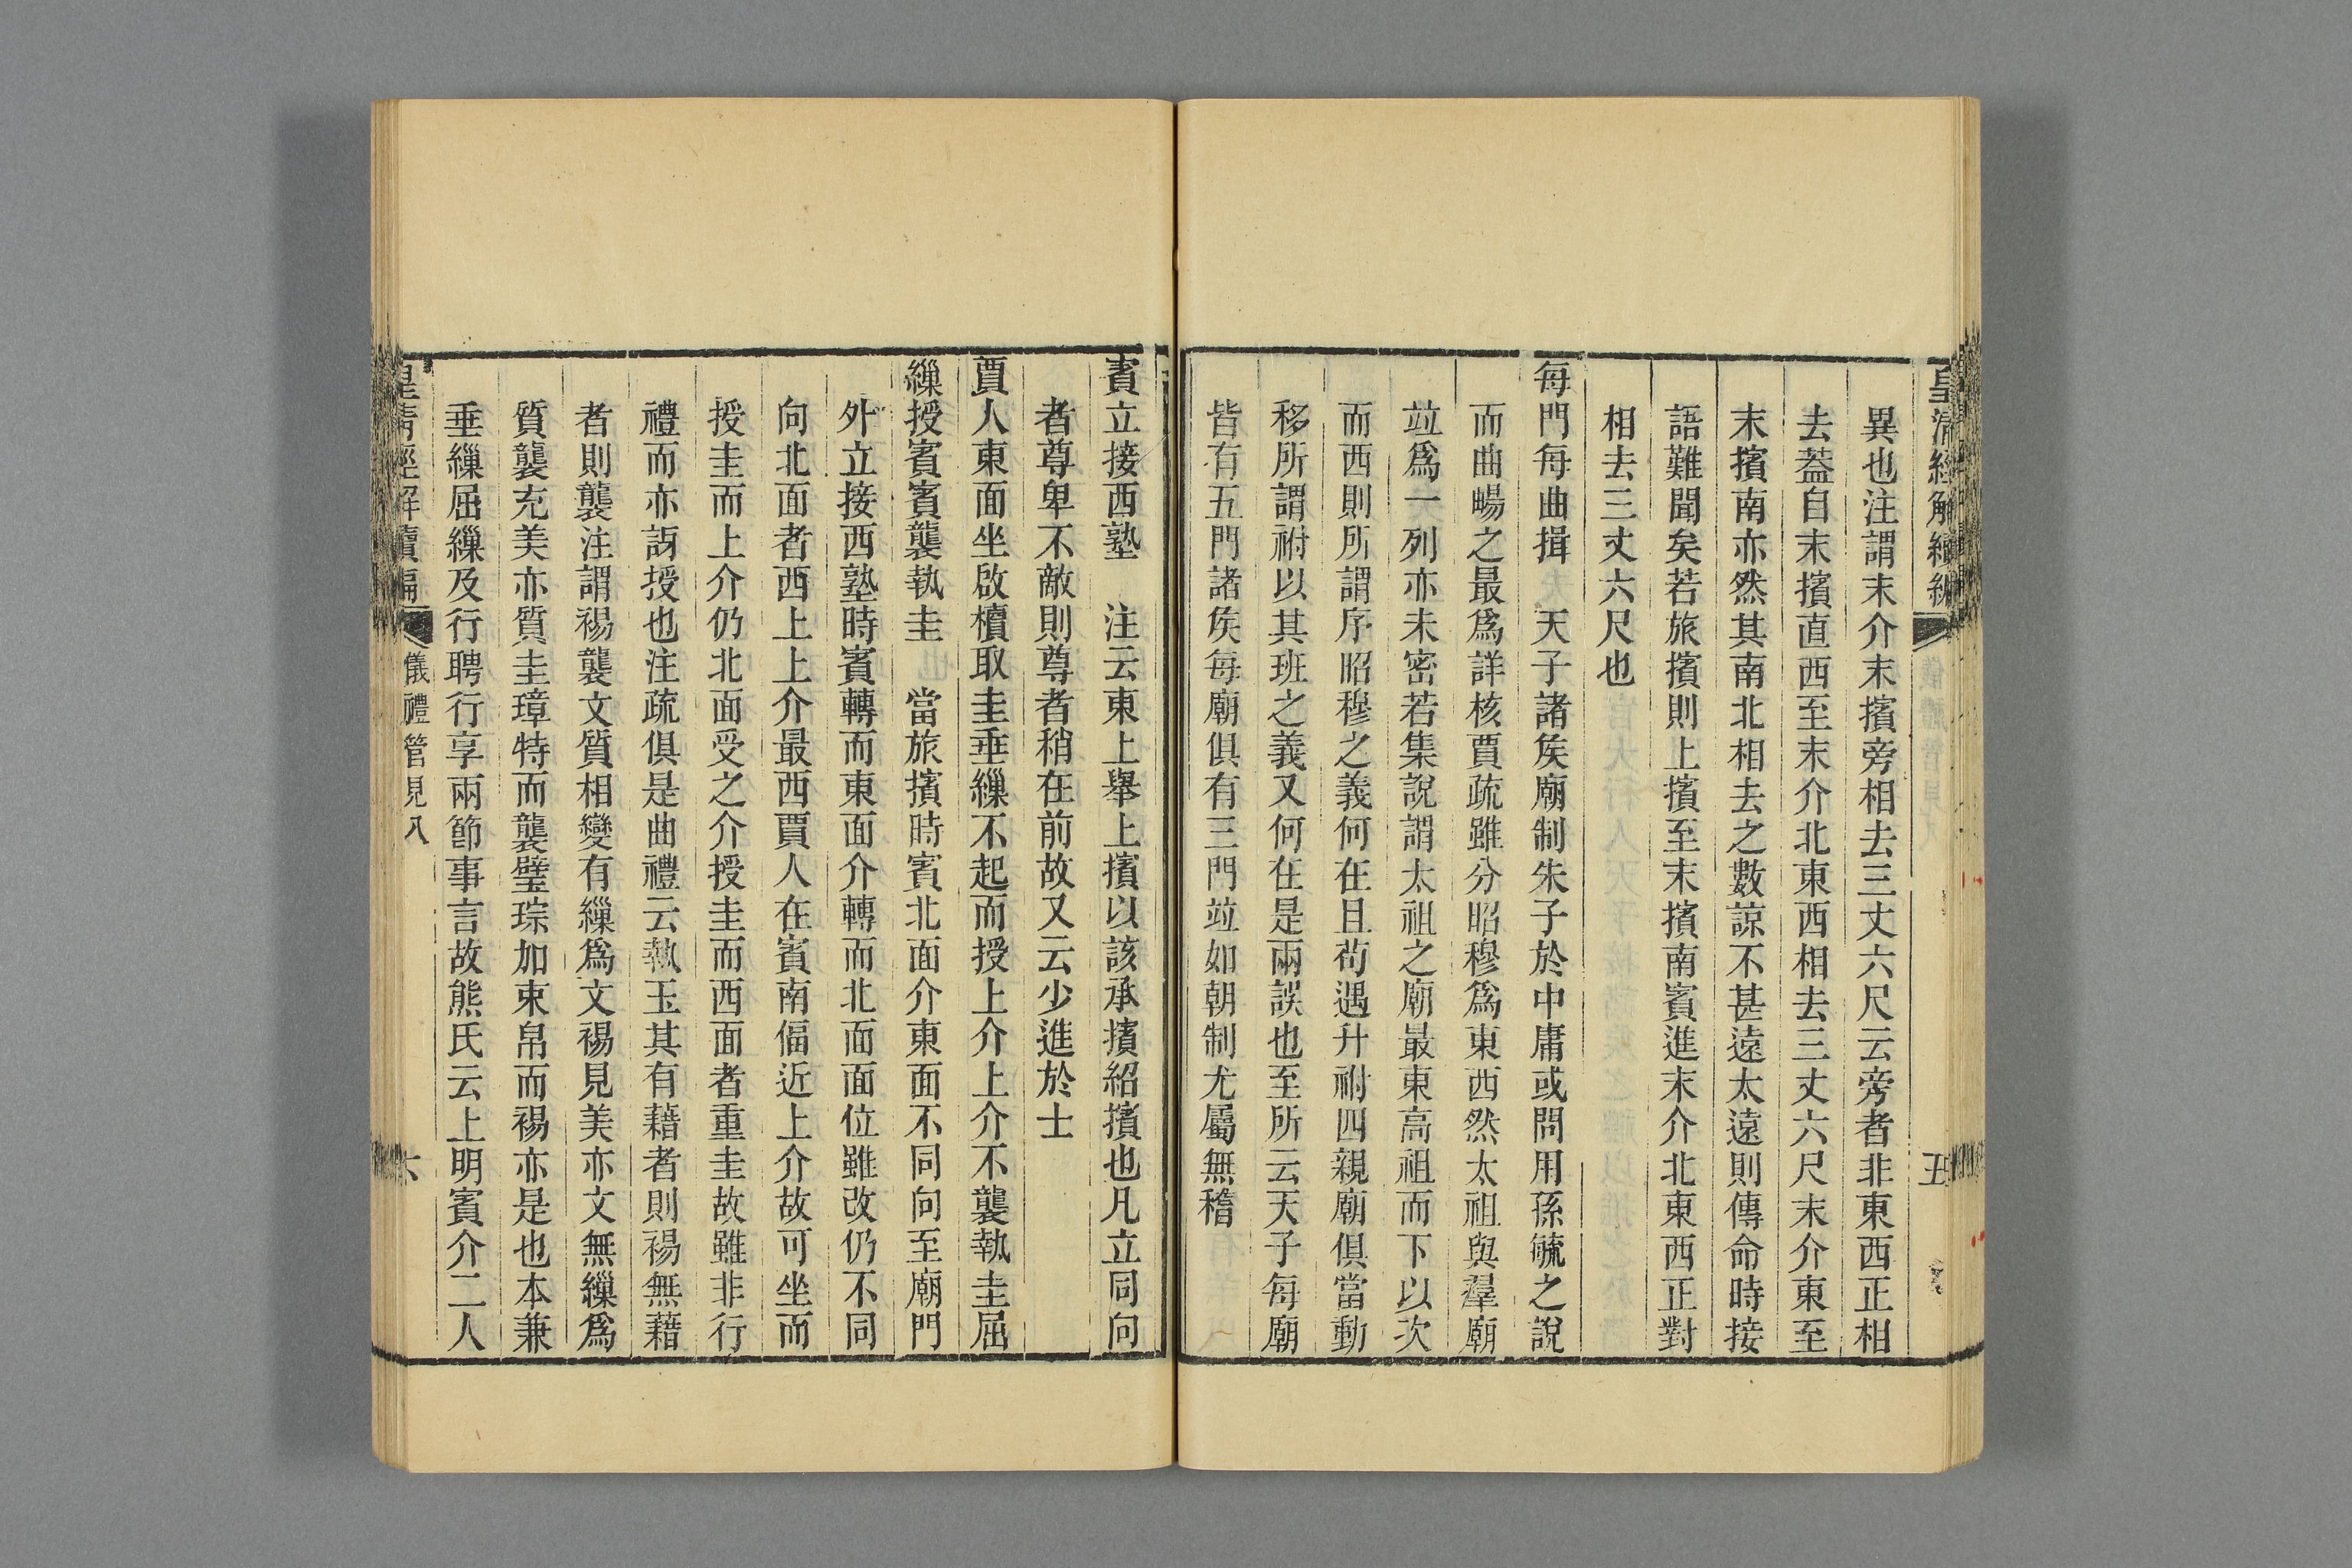 異也注謂末介末擯旁相去三丈六尺云旁者非東西正相
去葢自末擯直西至末介北東西相去三丈六尺末介東至
末擯南亦然其南北相去之數諒不甚遠太遠則傳命時接
語難聞矣若旅擯則上擯至末擯南賓進末介北東西正對
相去三丈六尺也
每門每曲揖　天子諸矦廟制朱子於中庸或問用孫毓之說
而曲暢之最爲詳核賈疏雖分昭穆爲東西然太祖與羣廟
竝爲一列亦未密若集說謂太祖之廟最東高祖而下以次
而西則所謂序昭穆之義何在且苟遇升祔四親廟俱當動
移所謂祔以其班之義又何在是兩誤也至所云天子每廟
皆有五門諸矦每廟俱有三門竝如朝制尤屬無稽
賓立接西塾　注云東上舉上擯以該承擯紹擯也凡立同向
者尊卑不敵則尊者稍在前故又云少進於士
賈人東面坐啟櫝取圭垂繅不起而授上介上介不襲執圭屈
繅授賓賓襲執圭　當旅擯時賓北面介東面不同向至廟門
外立接西塾時賓轉而東面介轉而北面面位雖改仍不同
向北面者西上上介最西賈人在賓南偪近上介故可坐而
授圭而上介仍北面受之介授圭而西面者重圭故雖非行
禮而亦訝授也注疏俱是曲禮云執玉其有藉者則裼無藉
者則襲注謂裼襲文質相變有繅爲文裼見美亦文無繅爲
質襲充美亦質圭璋特而襲璧琮加束帛而裼亦是也本兼
垂繅屈繅及行聘行享兩節事言故熊氏云上明賓介二人
皇清經解續編　儀禮管見八　六